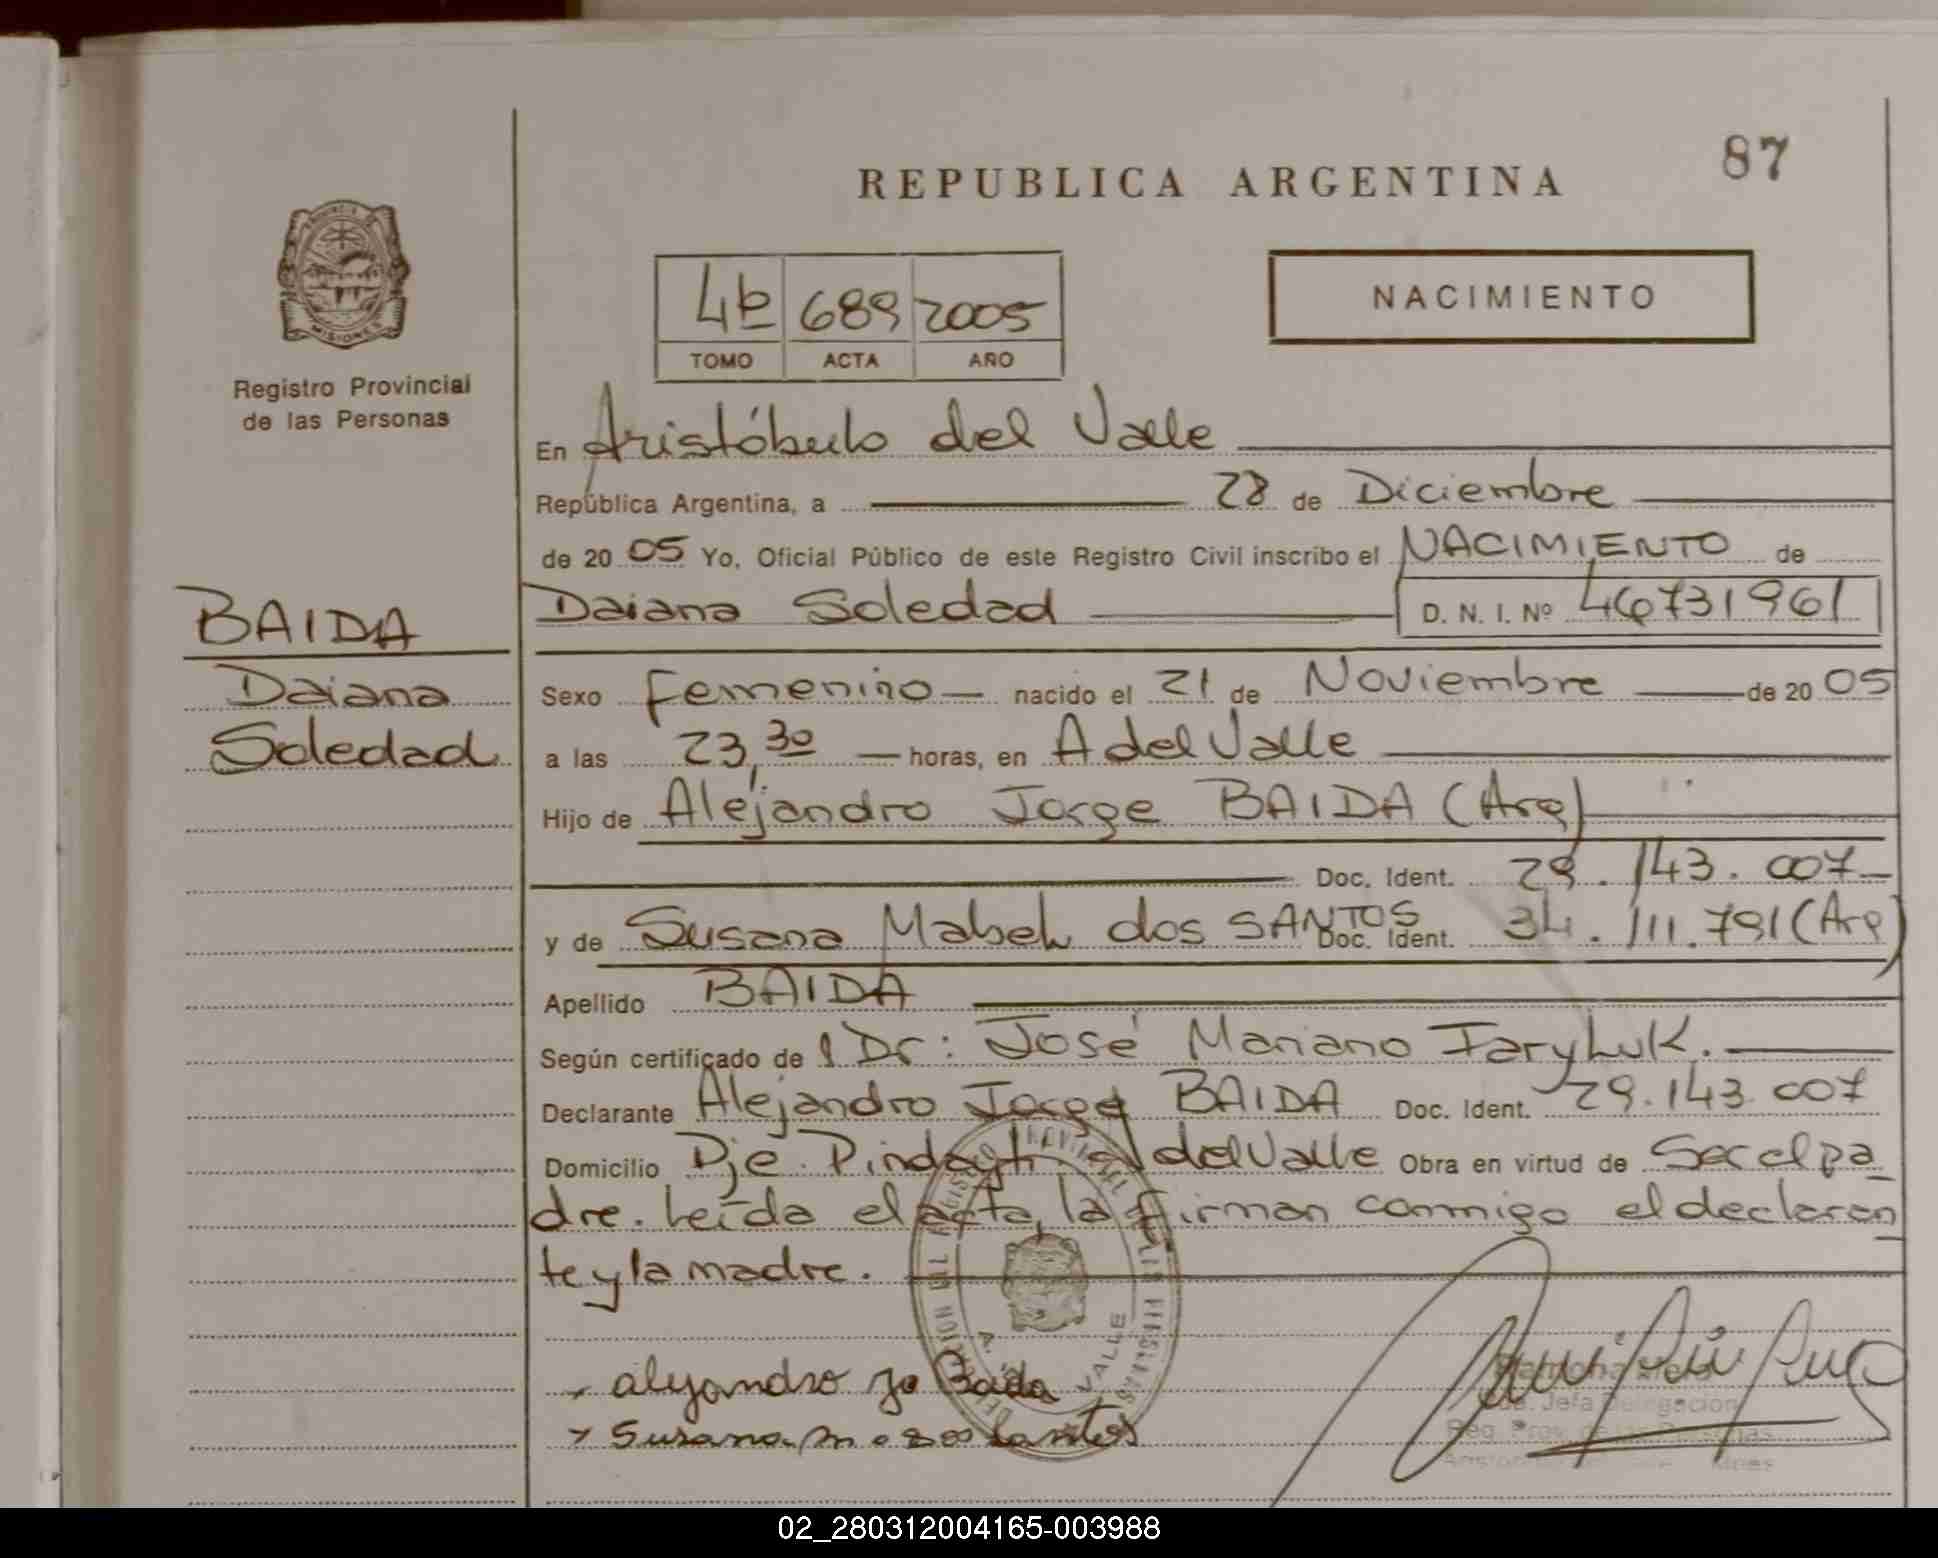 87
REPUBLICA ARGENTINA
MISIONES
Registro Provincial
de las Personas
NACIMIENTO
4b 689 2005
TOMO ACTA AÑO
En Aristóbulo del Valle
República Argentina, a 28 de Diciembre
de 20 05 Yo, Oficial Público de este Registro Civil inscribo el NACIMIENTO de
BAIDA
Daiana
Soledad
Daiana Soledad D. N. I. Nº 46731961
Sexo Femenino nacido el 21 de Noviembre de 20 05
a las 23,30 horas, en A del Valle
Hijo de Alejandro Jorge BAIDA (Arg)
Doc. Ident. 29.143.007
y de Susana Mabel dos SANTOS Doc. Ident. 34.111.791 (Arg)
Apellido BAIDA
Según certificado de Dr: José Mariano
Declarante Alejandro Jorge BAIDA Doc. Ident. 29.143.007
Domicilio Pje. Pindayti A del Valle Obra en virtud de Ser el pa
dre. Leída el acta, la firman conmigo el declaran
te y la madre.
alejandro jo Baida
Susana m dos santos
A. VALLE
Jefa Delegación
02_280312004165-003988